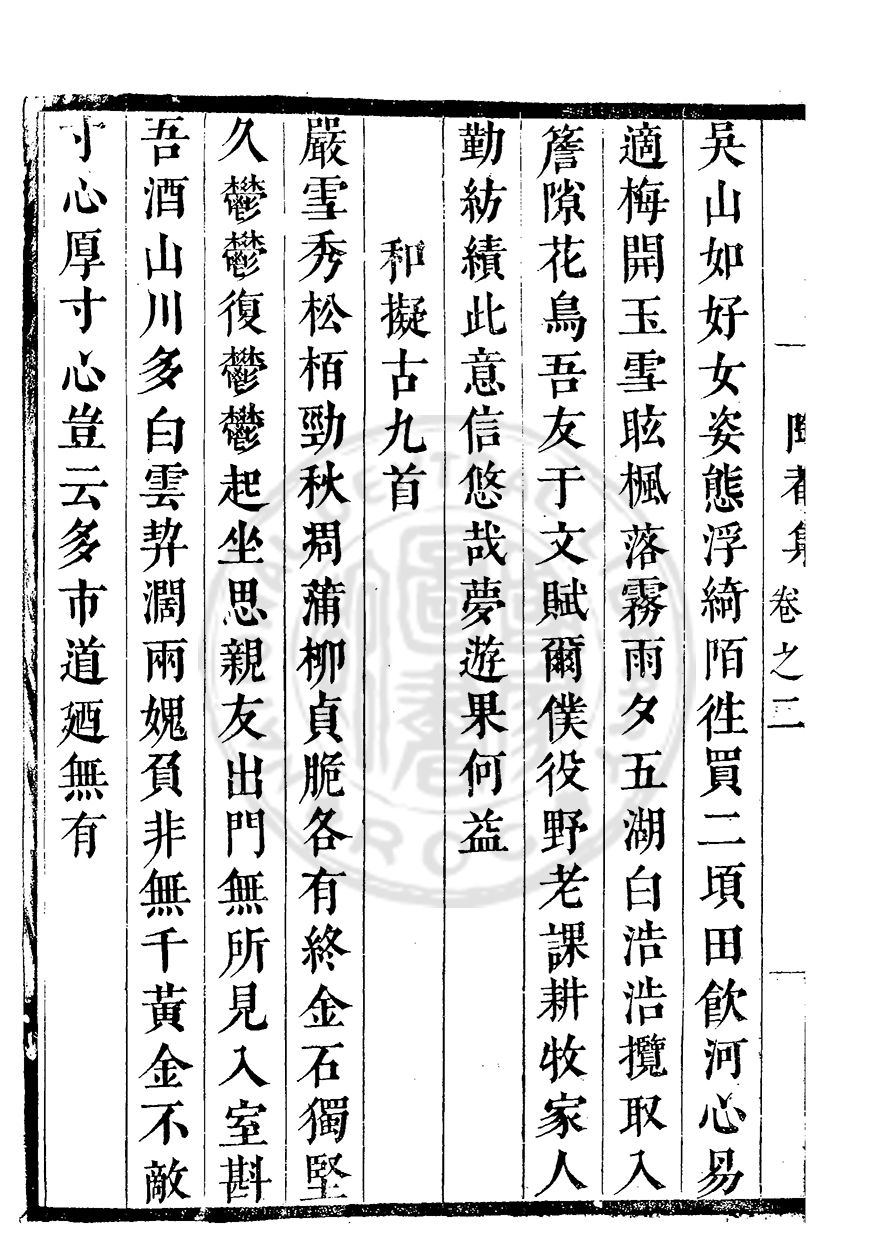 卷之二
吳山如好女姿態浮綺陌徃買二頃田飲河心易
適梅開玉雪眩楓落霧雨夕五湖白浩浩攬取入
簷隙花鳥吾友于文賦爾僕役野老課耕牧家人
勤紡績此意信悠哉夢遊果何益
和擬古九首
嚴雪秀松栢勁秋凋蒲柳貞脆各有終金石獨堅
久鬱鬱復鬱鬱起坐思親友出門無所見入室斟
吾酒山川多白雲契濶兩媿負非無千黃金不敵
寸心厚寸心豈云多市道廼無有